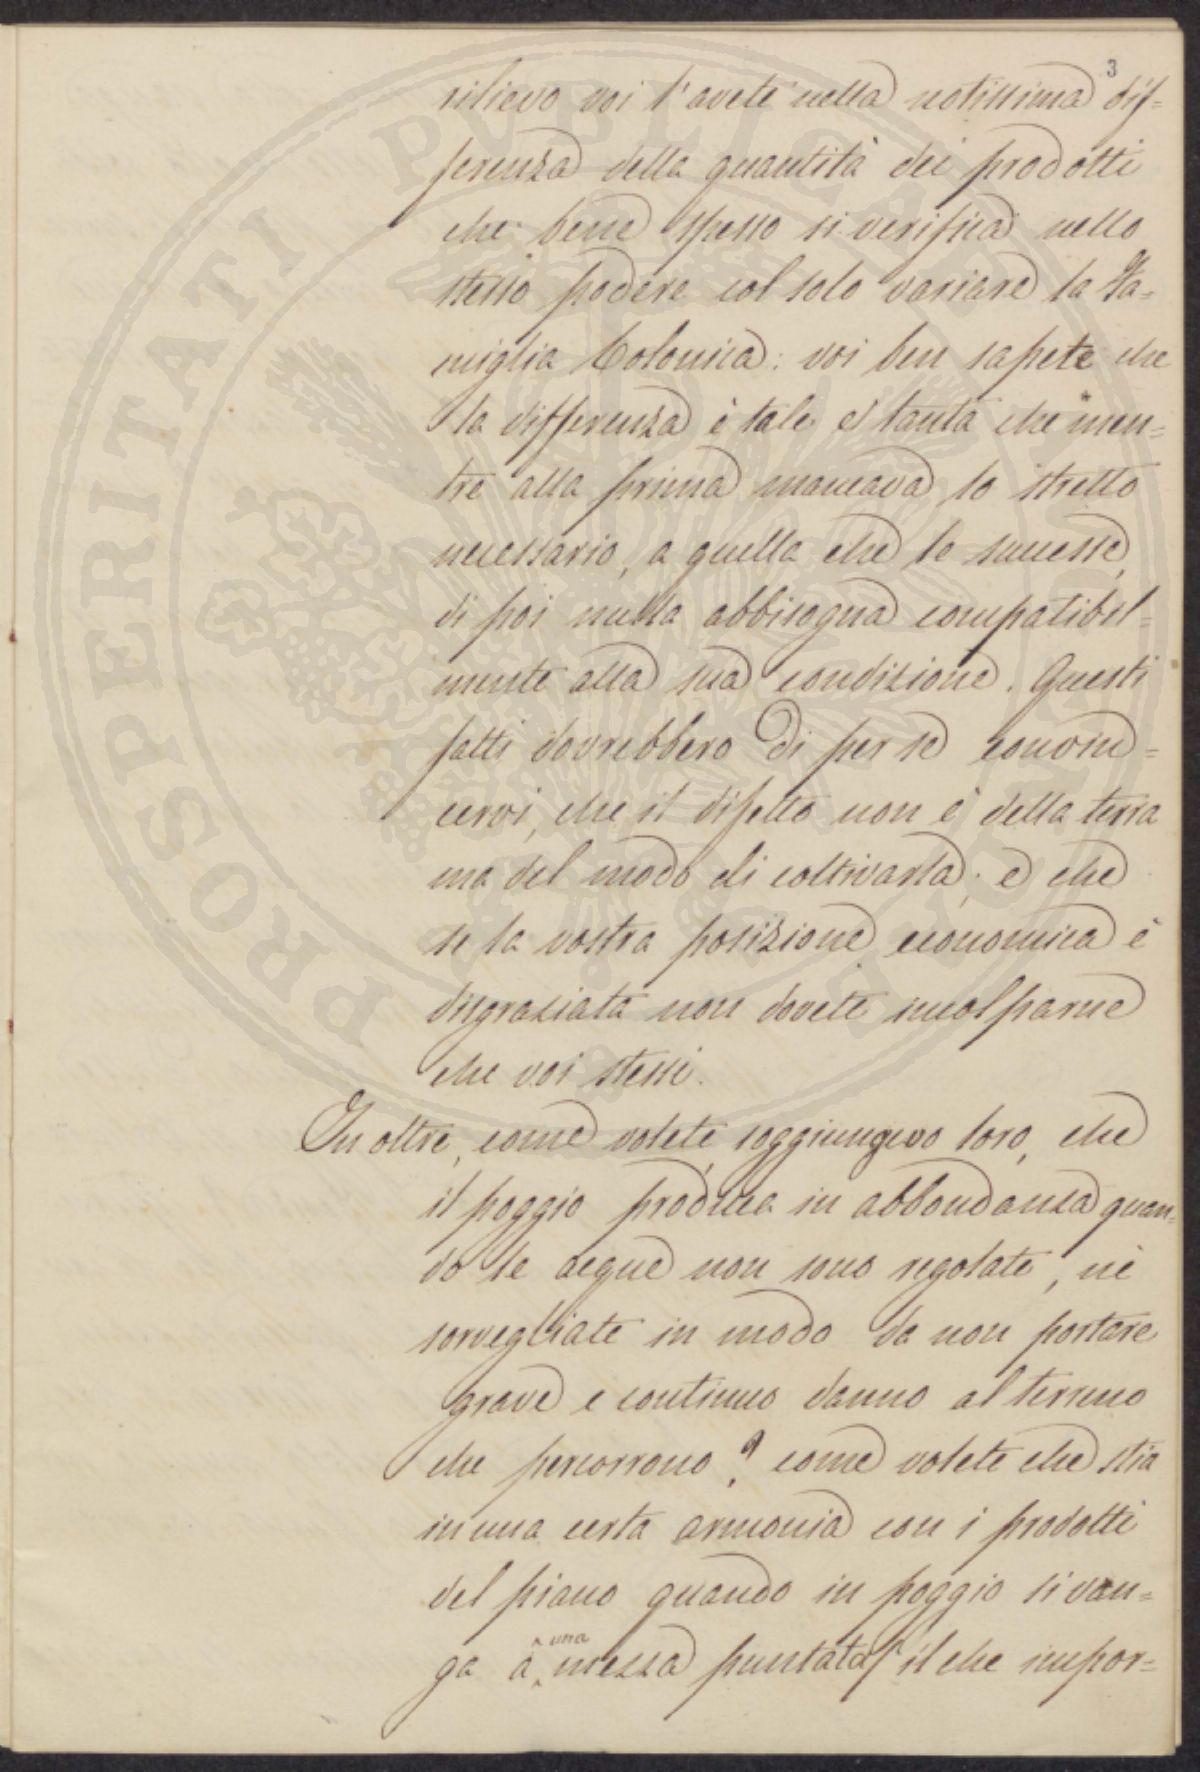 3
rilievo voi l'avete nella notissima dif=
ferenza della quantità dei prodotti
che bene spesso si verifica nello
stesso podere col solo variare la Fa=
miglia Colonica: voi ben sapete che
la differenza è tale e tanta che men=
tre alla prima mancava lo stretto
necessario, a quella che le successe,
di poi nulla abbisogna compatibil=
mente alla sua condizione. Questi
fatti dovrebbero di per se convin=
cervi, che il difetto non è della terra
ma del modo di coltivarla; e che
se la vostra posizione economica è
disgraziata non dovete incolparne
che voi stessi.
In oltre, come volete, soggiungevo loro, che
il poggio produca in abbondanza quan=
do le acque non sono regolate, nè
sorvegliate in modo da non portare
grave e continuo danno al terreno
che percorrono? come volete che stia
in una certa armonia con i prodotti
del piano quando in poggio si van=
ga a una mezza puntata/ il che impor=
PROSPERITATI PUBLICAE